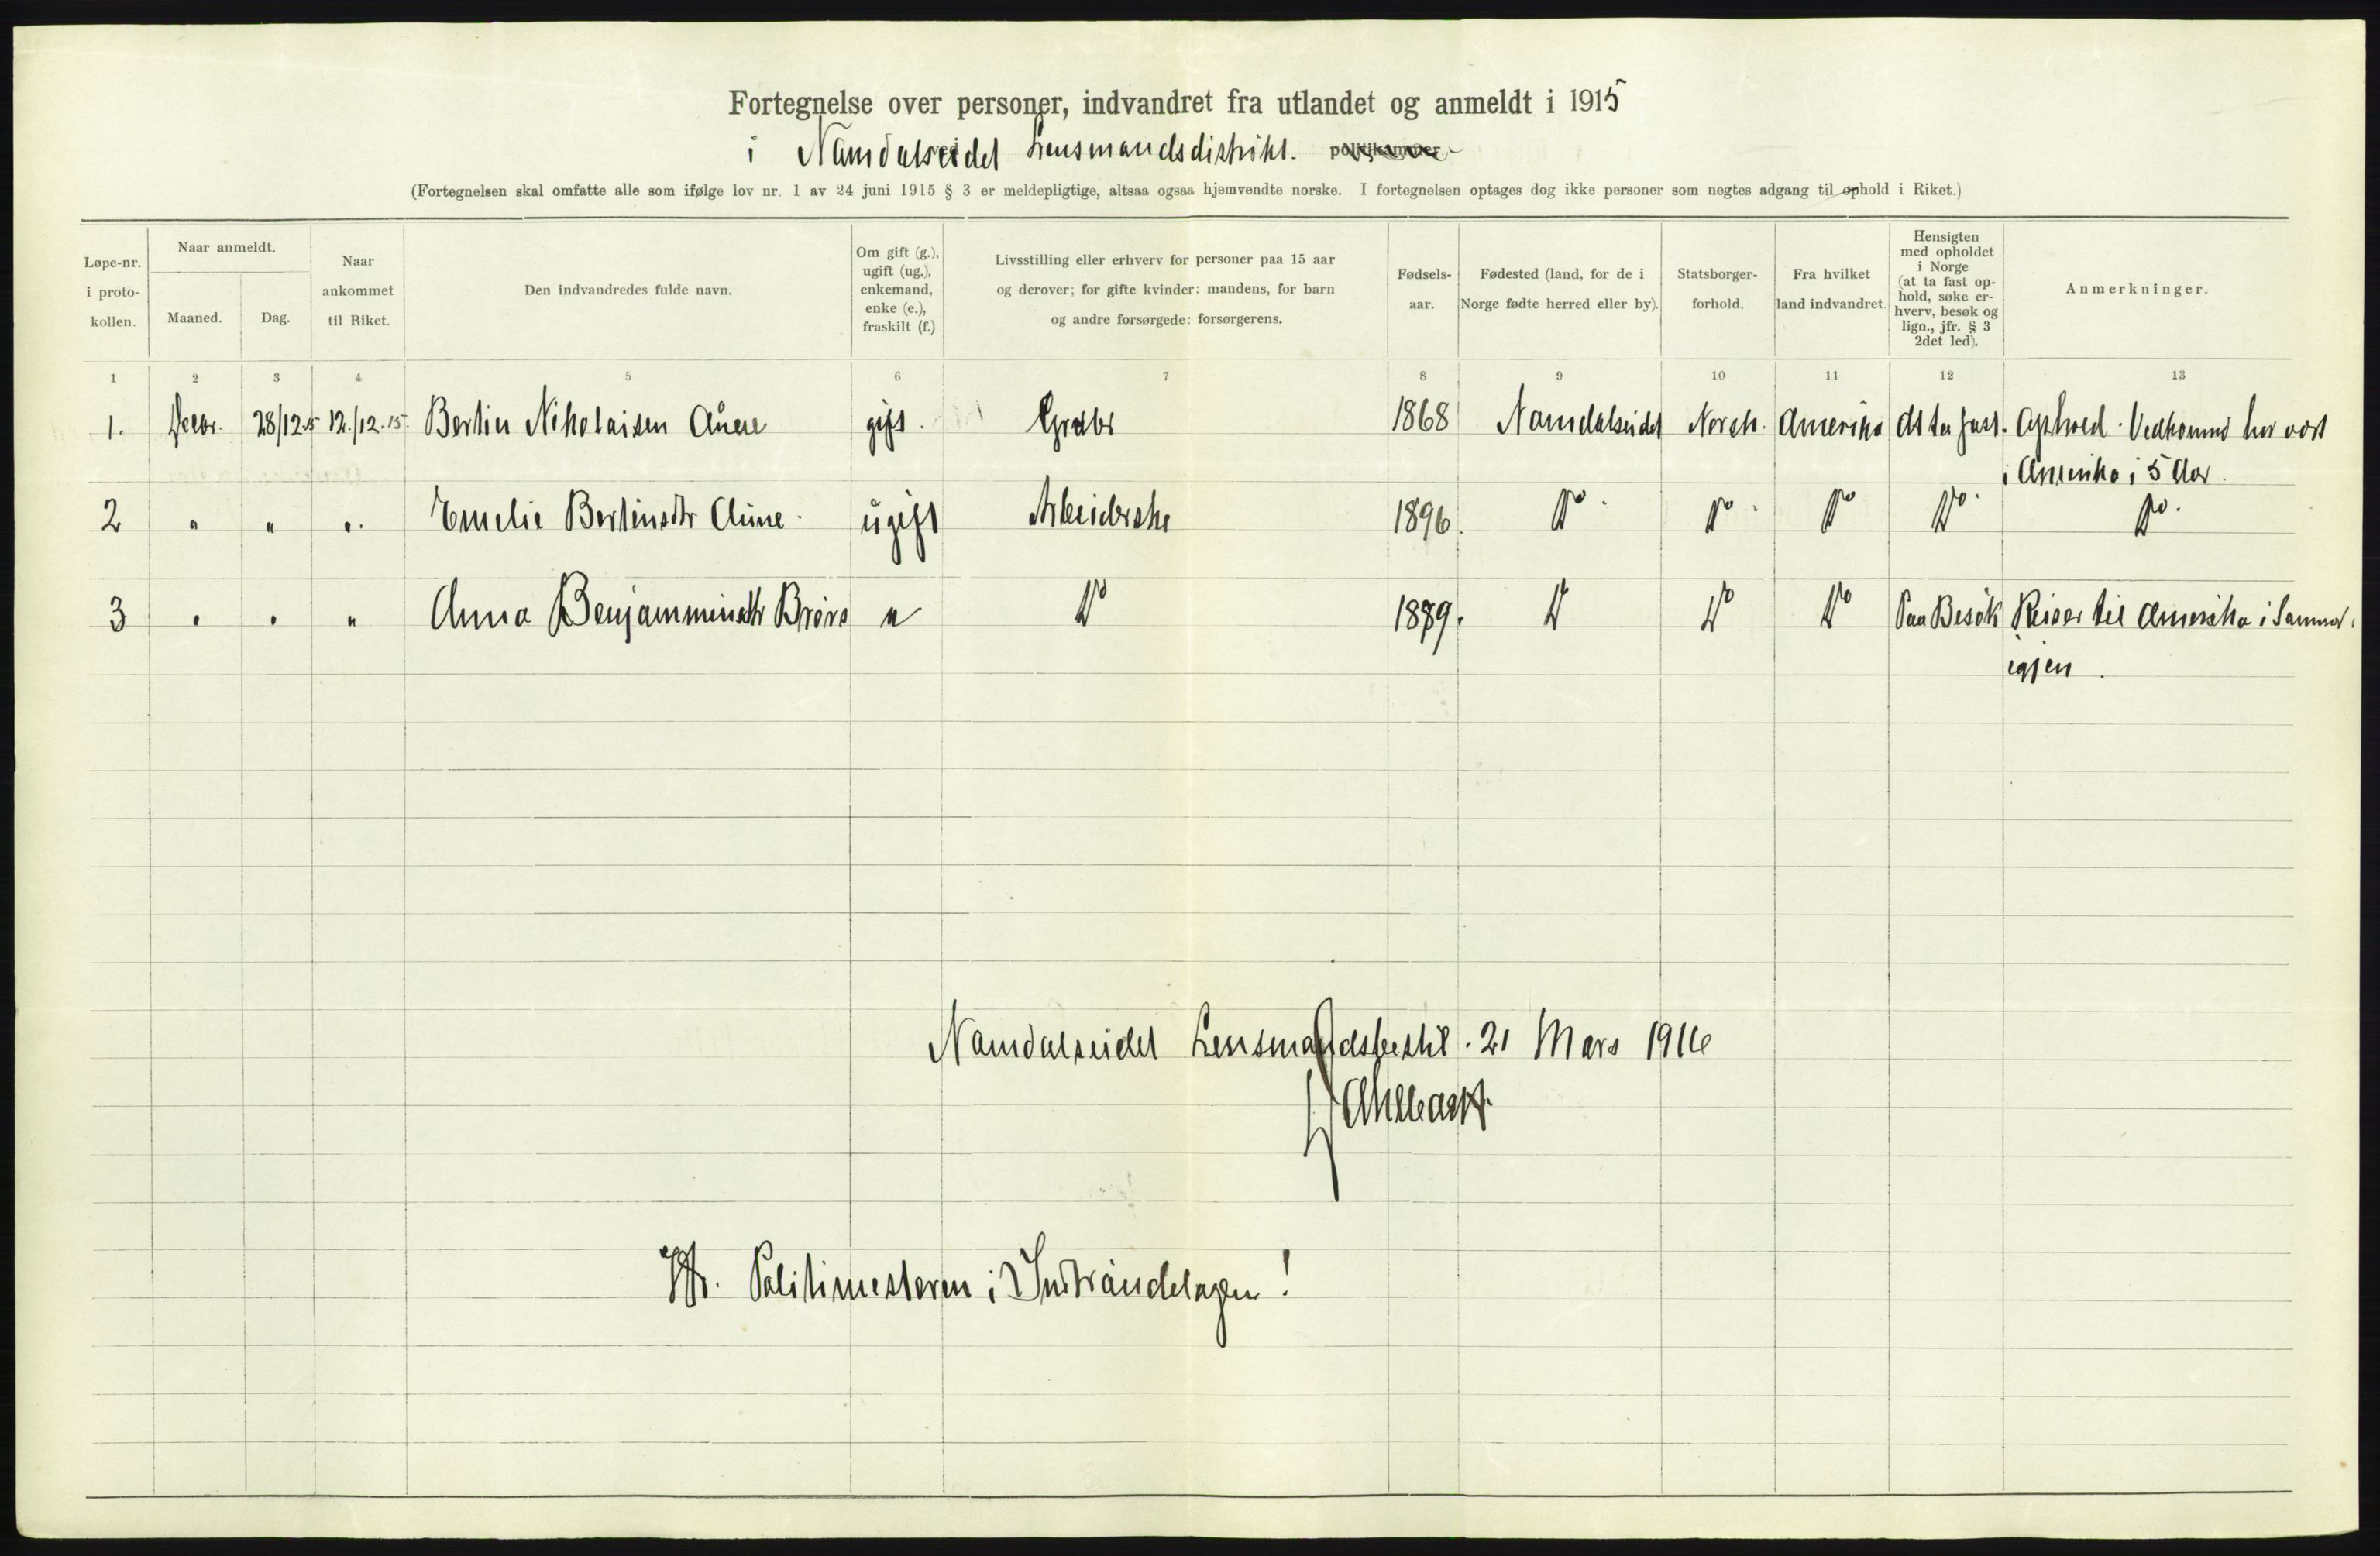 Fortegnelse over personer, indvandret fra utlandet og anmeldt i 1915
i Namdalseidet Lensmandsdistrikt. politikammer
(Fortegnelsen skal omfatte alle som ifølge lov nr. 1 av 24 juni 1915 § 3 er meldepligtige, altsaa ogsaa hjemvendte norske. I fortegnelsen optages dog ikke personer som negtes adgang til ophold i Riket.)
Løpe-nr.
i proto-
kollen.
Naar anmeldt.
Maaned.
Dag.
Naar
ankommet
til Riket.
Den indvandredes fulde navn.
Om gift (g.),
ugift (ug.),
enkemand,
enke (e.),
fraskilt (f.)
Livsstilling eller erhverv for personer paa 15 aar
og derover; for gifte kvinder: mandens, for barn
og andre forsørgede: forsørgerens.
Fødsels-
aar.
Fødested (land, for de i
Norge fødte herred eller by).
Statsborger-
forhold.
Fra hvilket
land indvandret.
Hensigten
med opholdet
i Norge
(at ta fast op-
hold, søke er-
hverv, besøk og
lign., jfr. § 3
2det led).
Anmerkninger.
1 2 3 4 5 6 7 8 9 10 11 12 13
1. Decbr. 28/12.15 12./12.15. Bertin Nikolaisen Aune gift. 1868 Namdalseidet Norsk. Amerika At ta fast. Ophold. Vedkommd har vært
i Amerika i 5 Aar.
2 " " ". Emelie Bertinsdtr Aune. ugift Arbeiderske 1896. Do. Do. Do Do. Do.
3 " " " Anna Benjaminsdtr Brørs " Do 1889. Do Do Do Paa Besøk Reiser til Amerika i Sommer
igjen.
Namdalseidet Lensmandsbestil. 21 Mars 1916
Hr. Politimesteren i Indtrøndelagen!